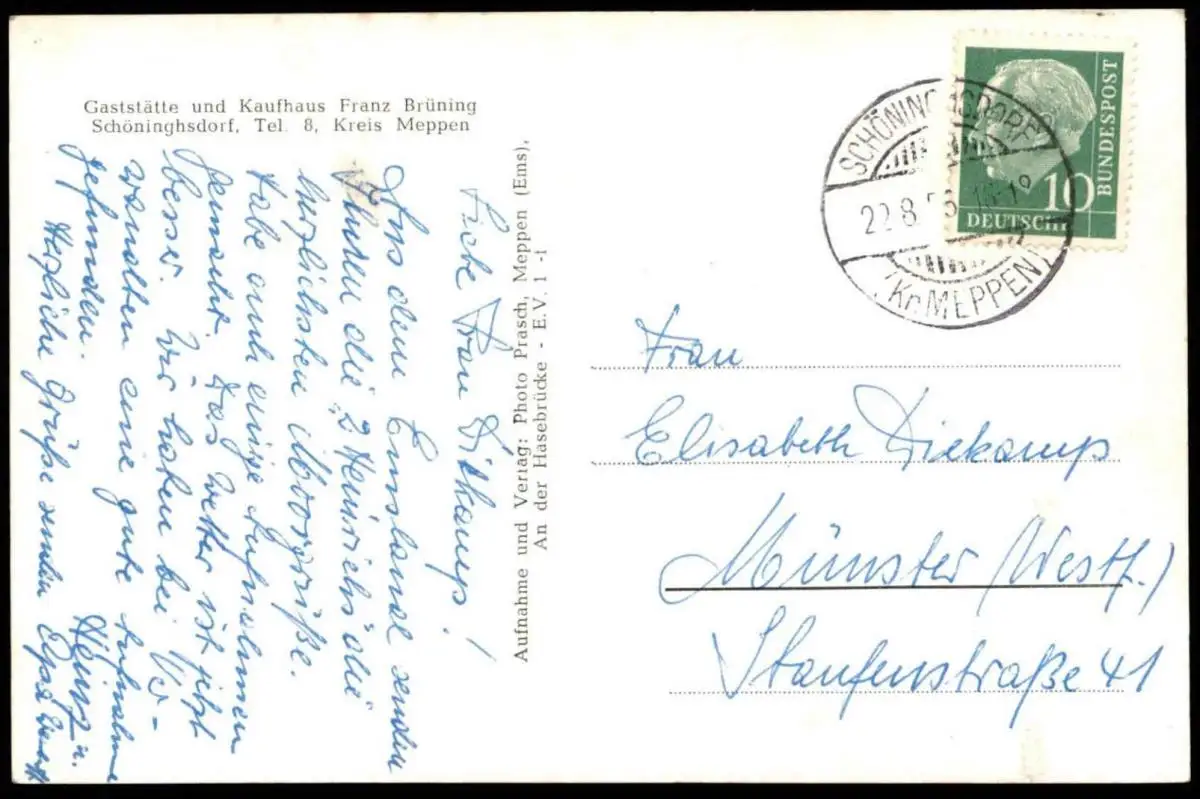 Gaststätte und Kaufhaus Franz Brüning
Schöninghsdorf, Tel. 8, Kreis Meppen
Liebe Frau Dikhamps!
Aus dem Emsland senden
Ihnen die "2 Heinrichs" die
herzlichsten Moorgrüße.
Habe auch einige Aufnahmen
gemacht. Das Wetter ist jetzt
besser. Wir haben bei Ver-
wandten eine gute Aufnahme
gefunden.
Herzliche Grüße senden
Heinz u.
Aufnahme und Vertag: Photo Prasch, Meppen (Ems),
An der Hasebrücke - E.V. 1 -1
BUNDESPOST
10
DEUTSCHE
SCHÖNINGHSDORF
22.8.5
(Kr. MEPPEN)
Frau
Elisabeth Diekamp
Münster (Westf.)
Staufenstraße 41